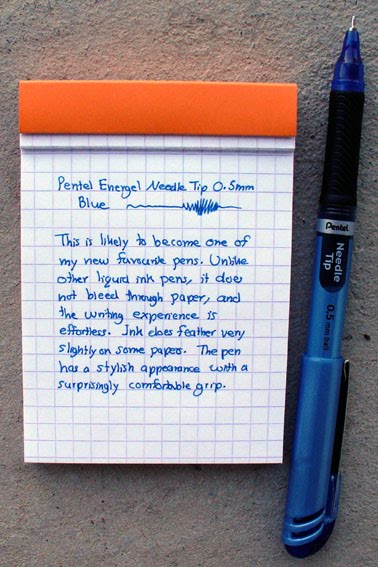 Pentel Energel Needle Tip 0.5mm
Blue
This is likely to become one of
my new favourite pens. Unlike
other liquid ink pens, it does
not bleed through paper, and
the writing experience is
effortless. Ink does feather very
slightly on some papers. The pen
has a stylish appearance with a
surprisingly comfortable grip.
Pentel
Needle
Tip
0.5 mm ball